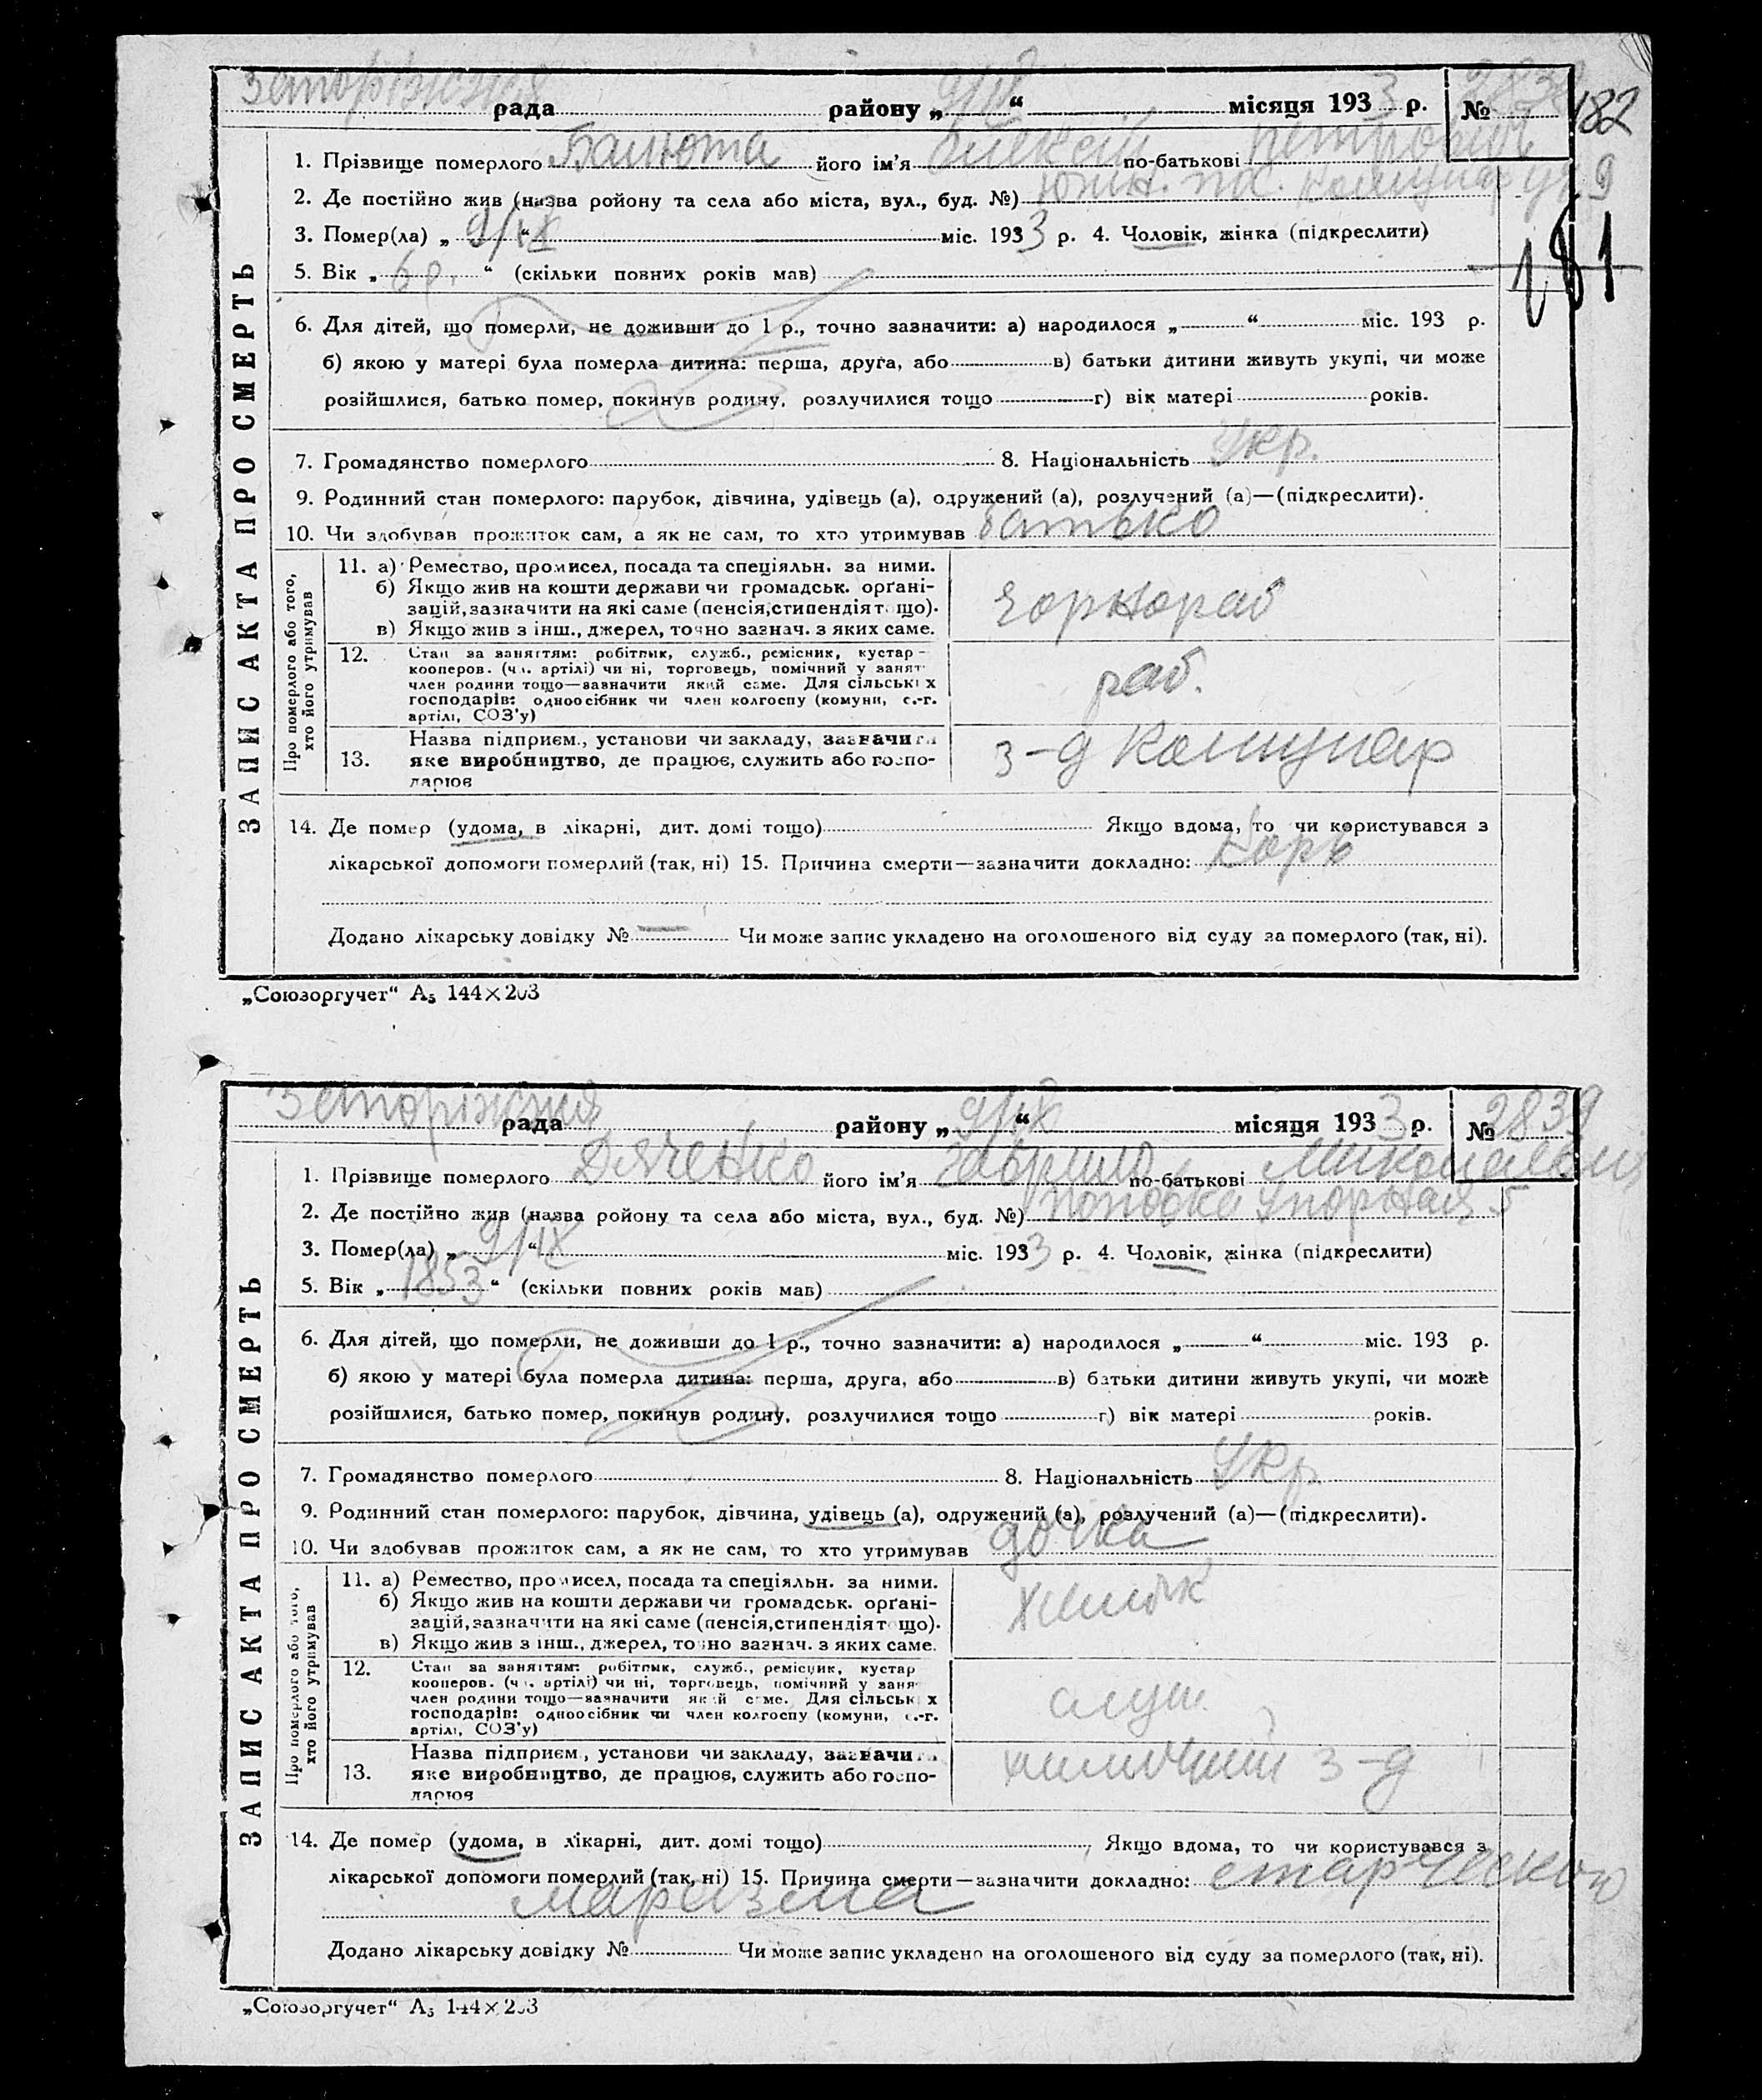 Запоріжжя рада району „ 9/IX “ місяця 1933 р. № 2838
182
1. Прізвище померлого Балюта його ім’я Олексій по-батькові Петрович
2. Де постійно жив (назва ройону та села або міста, вул., буд. №) Южн. пос. Комунар 9
3. Помер(ла) „ 9/IX “ міс. 1933 р. 4. Чоловік, жінка (підкреслити)
181
5. Вік „ 6 р. “ (скільки повних років мав)
6. Для дітей, що померли, не доживши до 1 р., точно зазначити: а) народилося „ “ міс. 193 р.
б) якою у матері була померла дитина: перша, друга, або в) батьки дитини живуть укупі, чи може
розійшлися, батько помер, покинув родину, розлучилися тощо г) вік матері років.
7. Громадянство померлого 8. Національність Укр.
9. Родинний стан померлого: парубок, дівчина, удівець (а), одружений (а), розлучений (а)—(підкреслити).
10. Чи здобував прожиток сам, а як не сам, то хто утримував батько
ЗАПИС АКТА ПРО СМЕРТЬ
Про померлого або того, хто його утримував
11. а) Ремество, промисел, посада та спеціяльн. за ними.
б) Якщо жив на кошти держави чи громадськ. орґані-
зацій, зазначити на які саме (пенсія, стипендія тощо).
в) Якщо жив з інш., джерел, точно зазнач. з яких саме.
чорнораб
12. Стан за заняттям: робітник, служб., ремісник, кустар-
кооперов. (чл. артілі) чи ні, торговець, помічний у занят
член родини тощо—зазначити який саме. Для сільських
господарів: одноосібник чи член колгоспу (комуни, с.-г.
артілі, СОЗ’у)
раб.
13. Назва підприєм., установи чи закладу, зазначити
яке виробництво, де працює, служить або госпо-
дарює
з-д Комунар
14. Де помер (удома, в лікарні, дит. домі тощо) Якщо вдома, то чи користувався з
лікарської допомоги померлий (так, ні) 15. Причина смерти—зазначити докладно: Корь
Додано лікарську довідку № — Чи може запис укладено на оголошеного від суду за померлого (так, ні).
„Союзоргучет“ А₅ 144×203
Запоріжжя рада району „ 9/IX “ місяця 1933 р. № 2839
1. Прізвище померлого Дяченко його ім’я Гаврило по-батькові Миколаевич
2. Де постійно жив (назва ройону та села або міста, вул., буд. №) Поповка Упорная 5
3. Помер(ла) „ 9/IX “ міс. 1933 р. 4. Чоловік, жінка (підкреслити)
5. Вік „ 1853 “ (скільки повних років мав)
6. Для дітей, що померли, не доживши до 1 р., точно зазначити: а) народилося „ “ міс. 193 р.
б) якою у матері була померла дитина: перша, друга, або в) батьки дитини живуть укупі, чи може
розійшлися, батько помер, покинув родину, розлучилися тощо г) вік матері років.
7. Громадянство померлого 8. Національність Укр
9. Родинний стан померлого: парубок, дівчина, удівець (а), одружений (а), розлучений (а)—(підкреслити).
10. Чи здобував прожиток сам, а як не сам, то хто утримував дочка
ЗАПИС АКТА ПРО СМЕРТЬ
Про померлого або того, хто його утримував
11. а) Ремество, промисел, посада та спеціяльн. за ними.
б) Якщо жив на кошти держави чи громадськ. орґані-
зацій, зазначити на які саме (пенсія, стипендія тощо).
в) Якщо жив з інш., джерел, точно зазнач. з яких саме.
химик
12. Стан за заняттям: робітник, служб., ремісник, кустар
кооперов. (чл. артілі) чи ні, торговець, помічний у заня
член родини тощо—зазначити який саме. Для сільських
господарів: одноосібник чи член колгоспу (комуни, с.-г.
артілі, СОЗ’у)
служ.
13. Назва підприєм., установи чи закладу, зазначити
яке виробництво, де працює, служить або госпо-
дарює
химичний з-д
14. Де помер (удома, в лікарні, дит. домі тощо) Якщо вдома, то чи користувався з
лікарської допомоги померлий (так, ні) 15. Причина смерти—зазначити докладно: старческого
маразма
Додано лікарську довідку № Чи може запис укладено на оголошеного від суду за померлого (так, ні).
„Союзоргучет“ А₅ 144×203